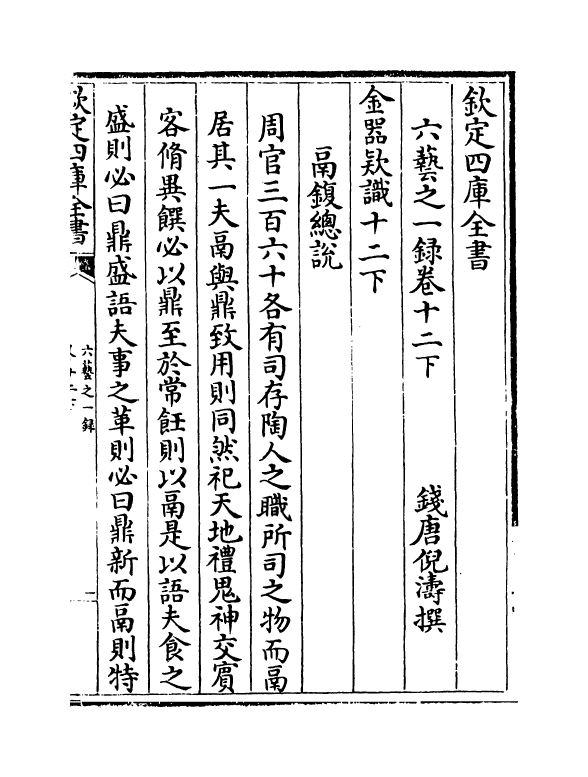 欽定四庫全書
六藝之一録卷十二下
錢唐倪濤撰
金器欵識十二下
鬲鍑總説
周官三百六十各有司存陶人之職所司之物而鬲
居其一夫鬲與鼎致用則同然祀天地禮鬼神交賓
客脩異饌必以鼎至於常飪則以鬲是以語夫食之
盛則必曰鼎盛語夫事之革則必曰鼎新而鬲則特
欽定四庫全書
六藝之一録